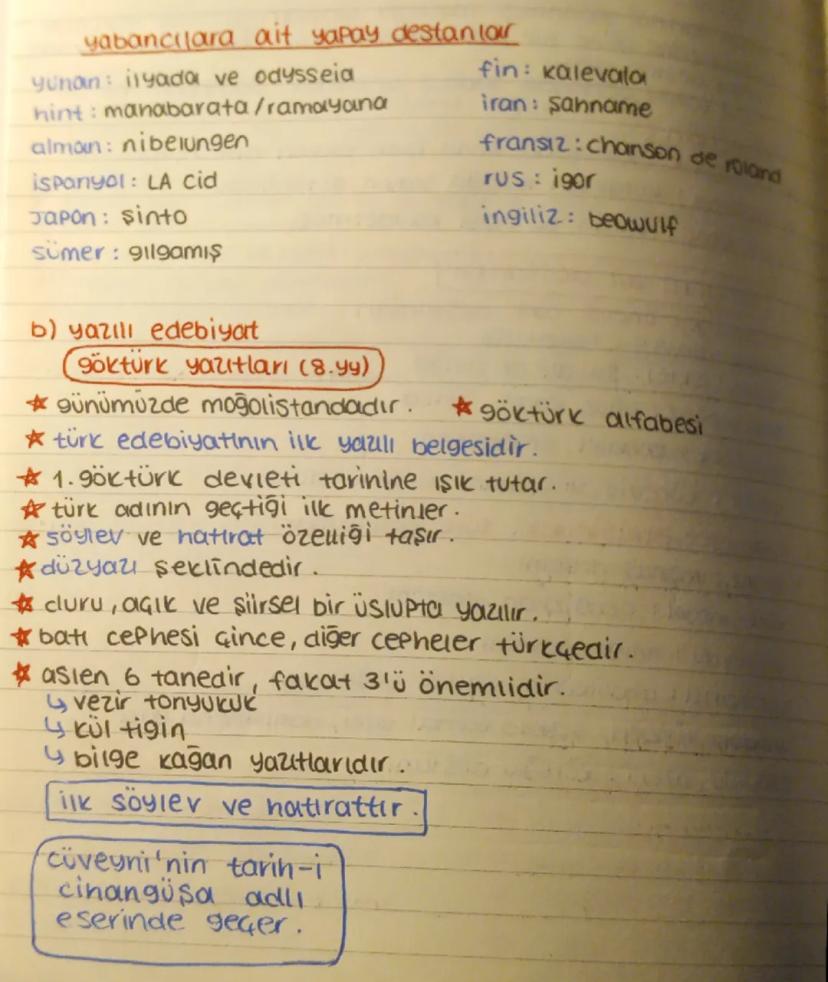 yabancılara ait yapay destanlar
yunan: ilyada ve odysseia
hint: mahabarata/ramayana
alman: nibelungen
ispanyol: LA Cid
Japon: şinto
sümer: gılgamış
fin: kalevala
iran: şahname
fransız: chanson de roland
rus: igor
ingiliz: beowulf
b) yazılı edebiyat
göktürk yazıtları (8.yy)
☆ günümüzde moğolistandadır. ☆ göktürk alfabesi
☆ türk edebiyatının ilk yazılı belgesidir.
☆ 1. göktürk devleti tarihine ışık tutar.
☆ türk adının geçtiği ilk metinler.
☆ söylev ve hatırat özelliği taşır.
☆ düzyazı şeklindedir.
☆ duru, açık ve şiirsel bir üslupta yazılır.
☆ batı cephesi çince, diğer cepheler türkçedir.
☆ aslen 6 tanedir, fakat 3'ü önemlidir.
↳ vezir tonyukuk
↳ kül tigin
↳ bilge kağan yazıtlarıdır.
ilk söylev ve hatırattır.
cüveyni'nin tarih-i
cihangüşa adlı
eserinde geçer.